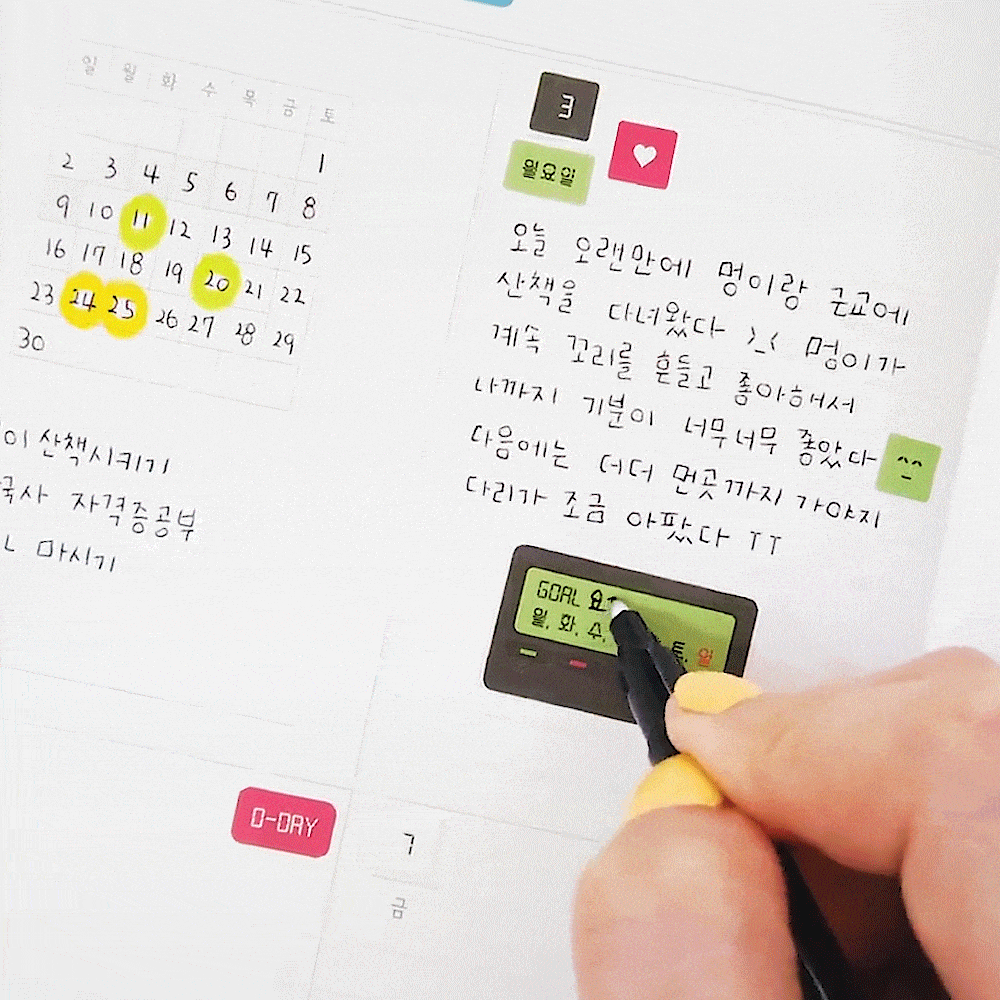 일 월 화 수 목 금 토
1
2 3 4 5 6 7 8
9 10 11 12 13 14 15
16 17 18 19 20 21 22
23 24 25 26 27 28 29
30
이 산책시키기
국사 자격증공부
L 마시기
3
월요일
오늘 오랜만에 멍이랑 근교에
산책을 다녀왔다 >_< 멍이가
계속 꼬리를 흔들고 좋아해서
나까지 기분이 너무너무 좋았다
^_^
다음에는 더더 먼곳까지 가야지
다리가 조금 아팠다 TT
GOAL 요
월, 화, 수, 토, 일
D-DAY
7
금